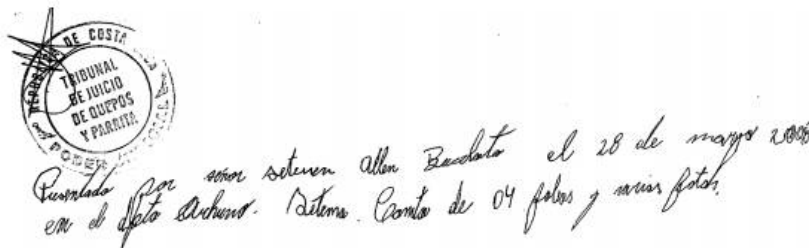 REPUBLICA DE COSTA RICA
TRIBUNAL
DE JUICIO
DE QUEPOS
Y PARRITA
PODER JUDICIAL
Presentado por señor setenen Allen el 28 de mayo
en el dpto. Consta de 04 folios y varias fotos.